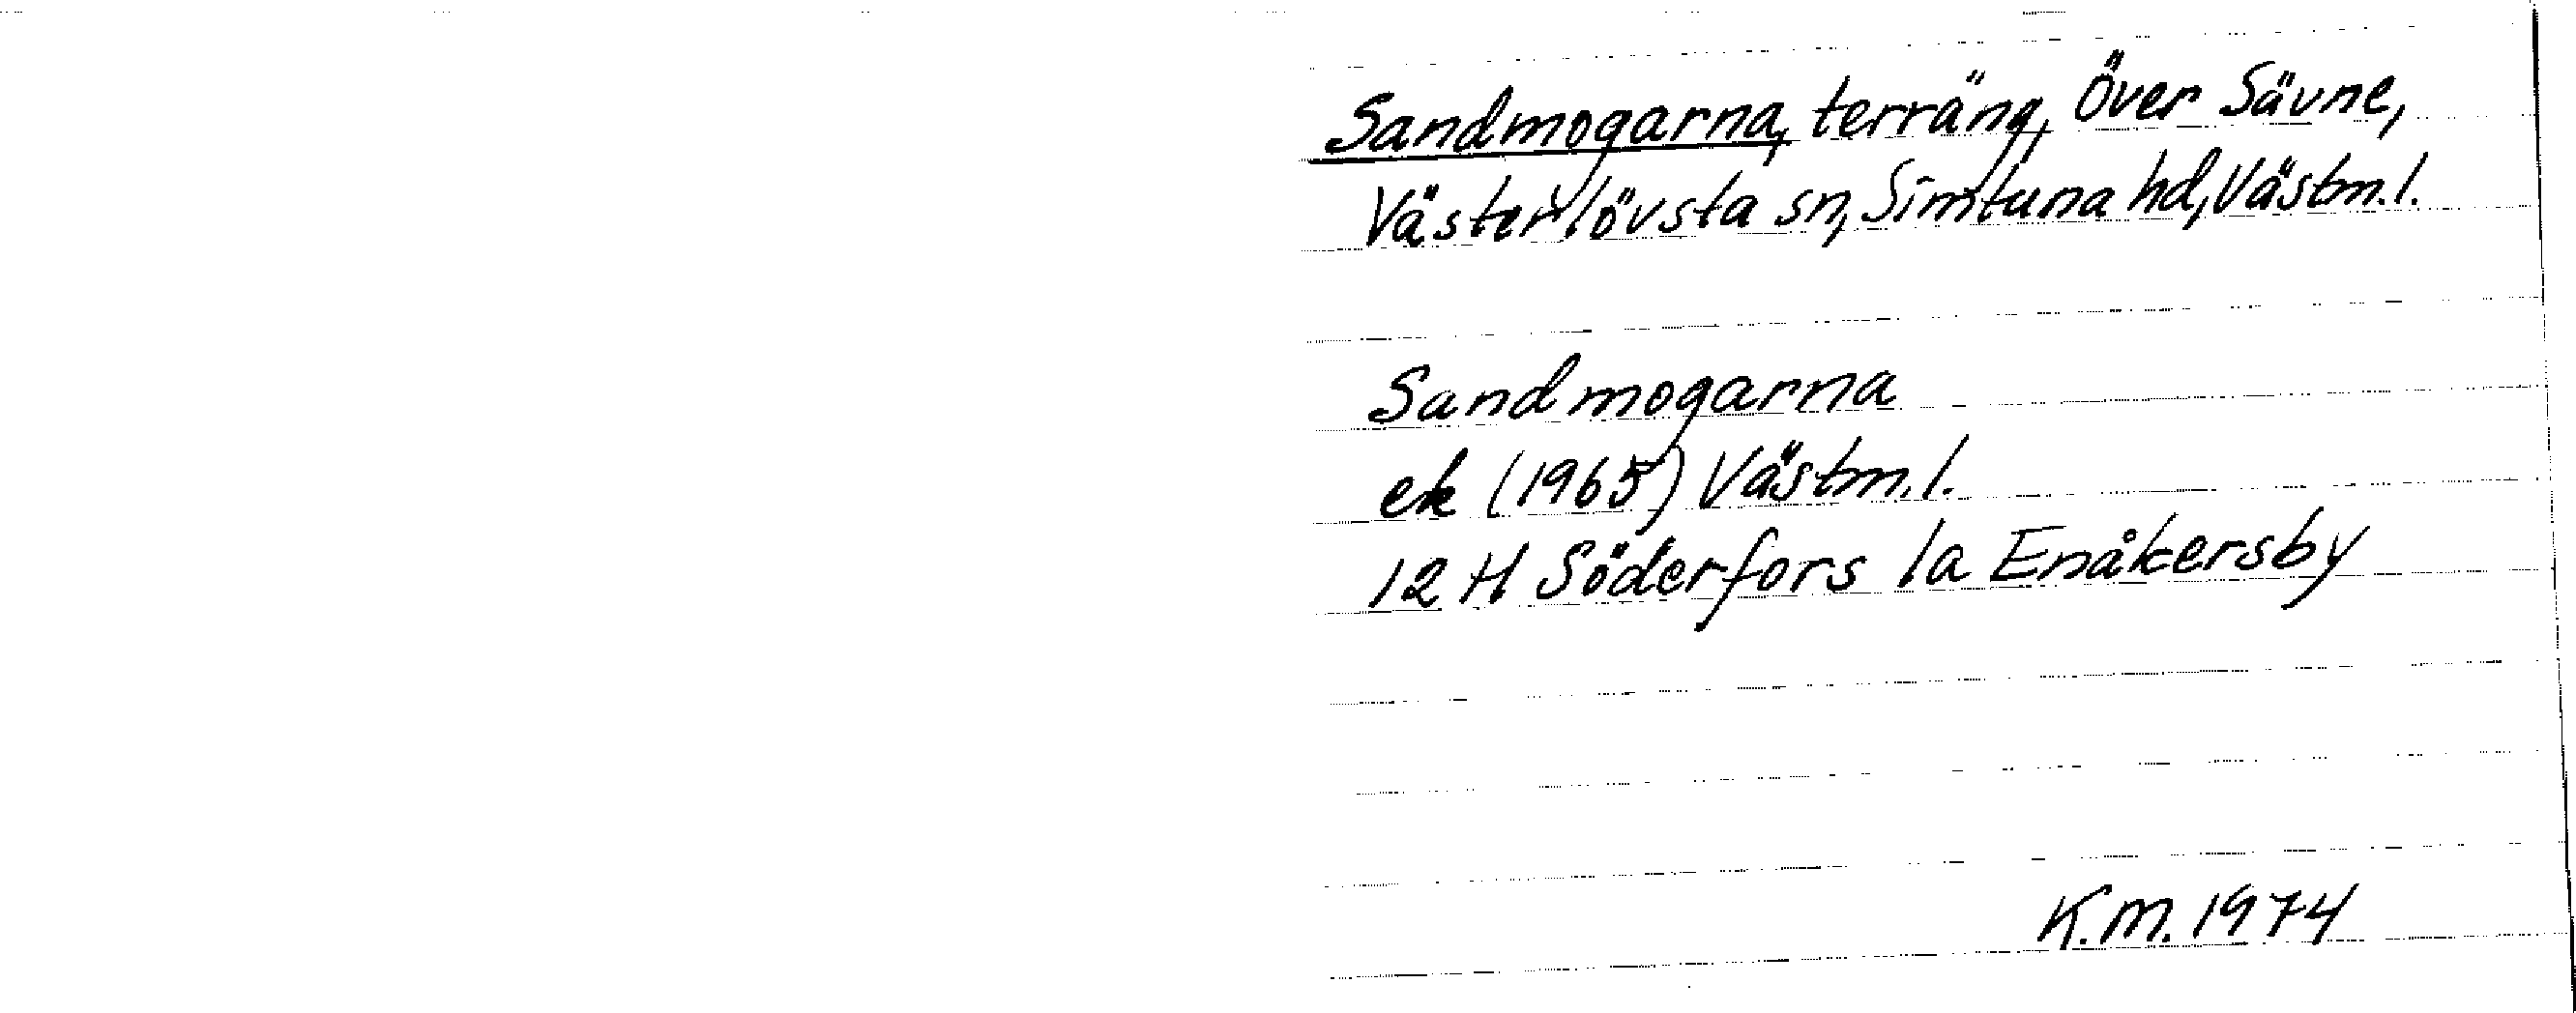 Sandmogarna, terräng, Över Sävne,
Västerlövsta sn, Simtuna hd, Västm. l.
Sandmogarna
ek (1965) Västm. l.
12 H Söderfors 1a Enåkersby
K.M. 1974